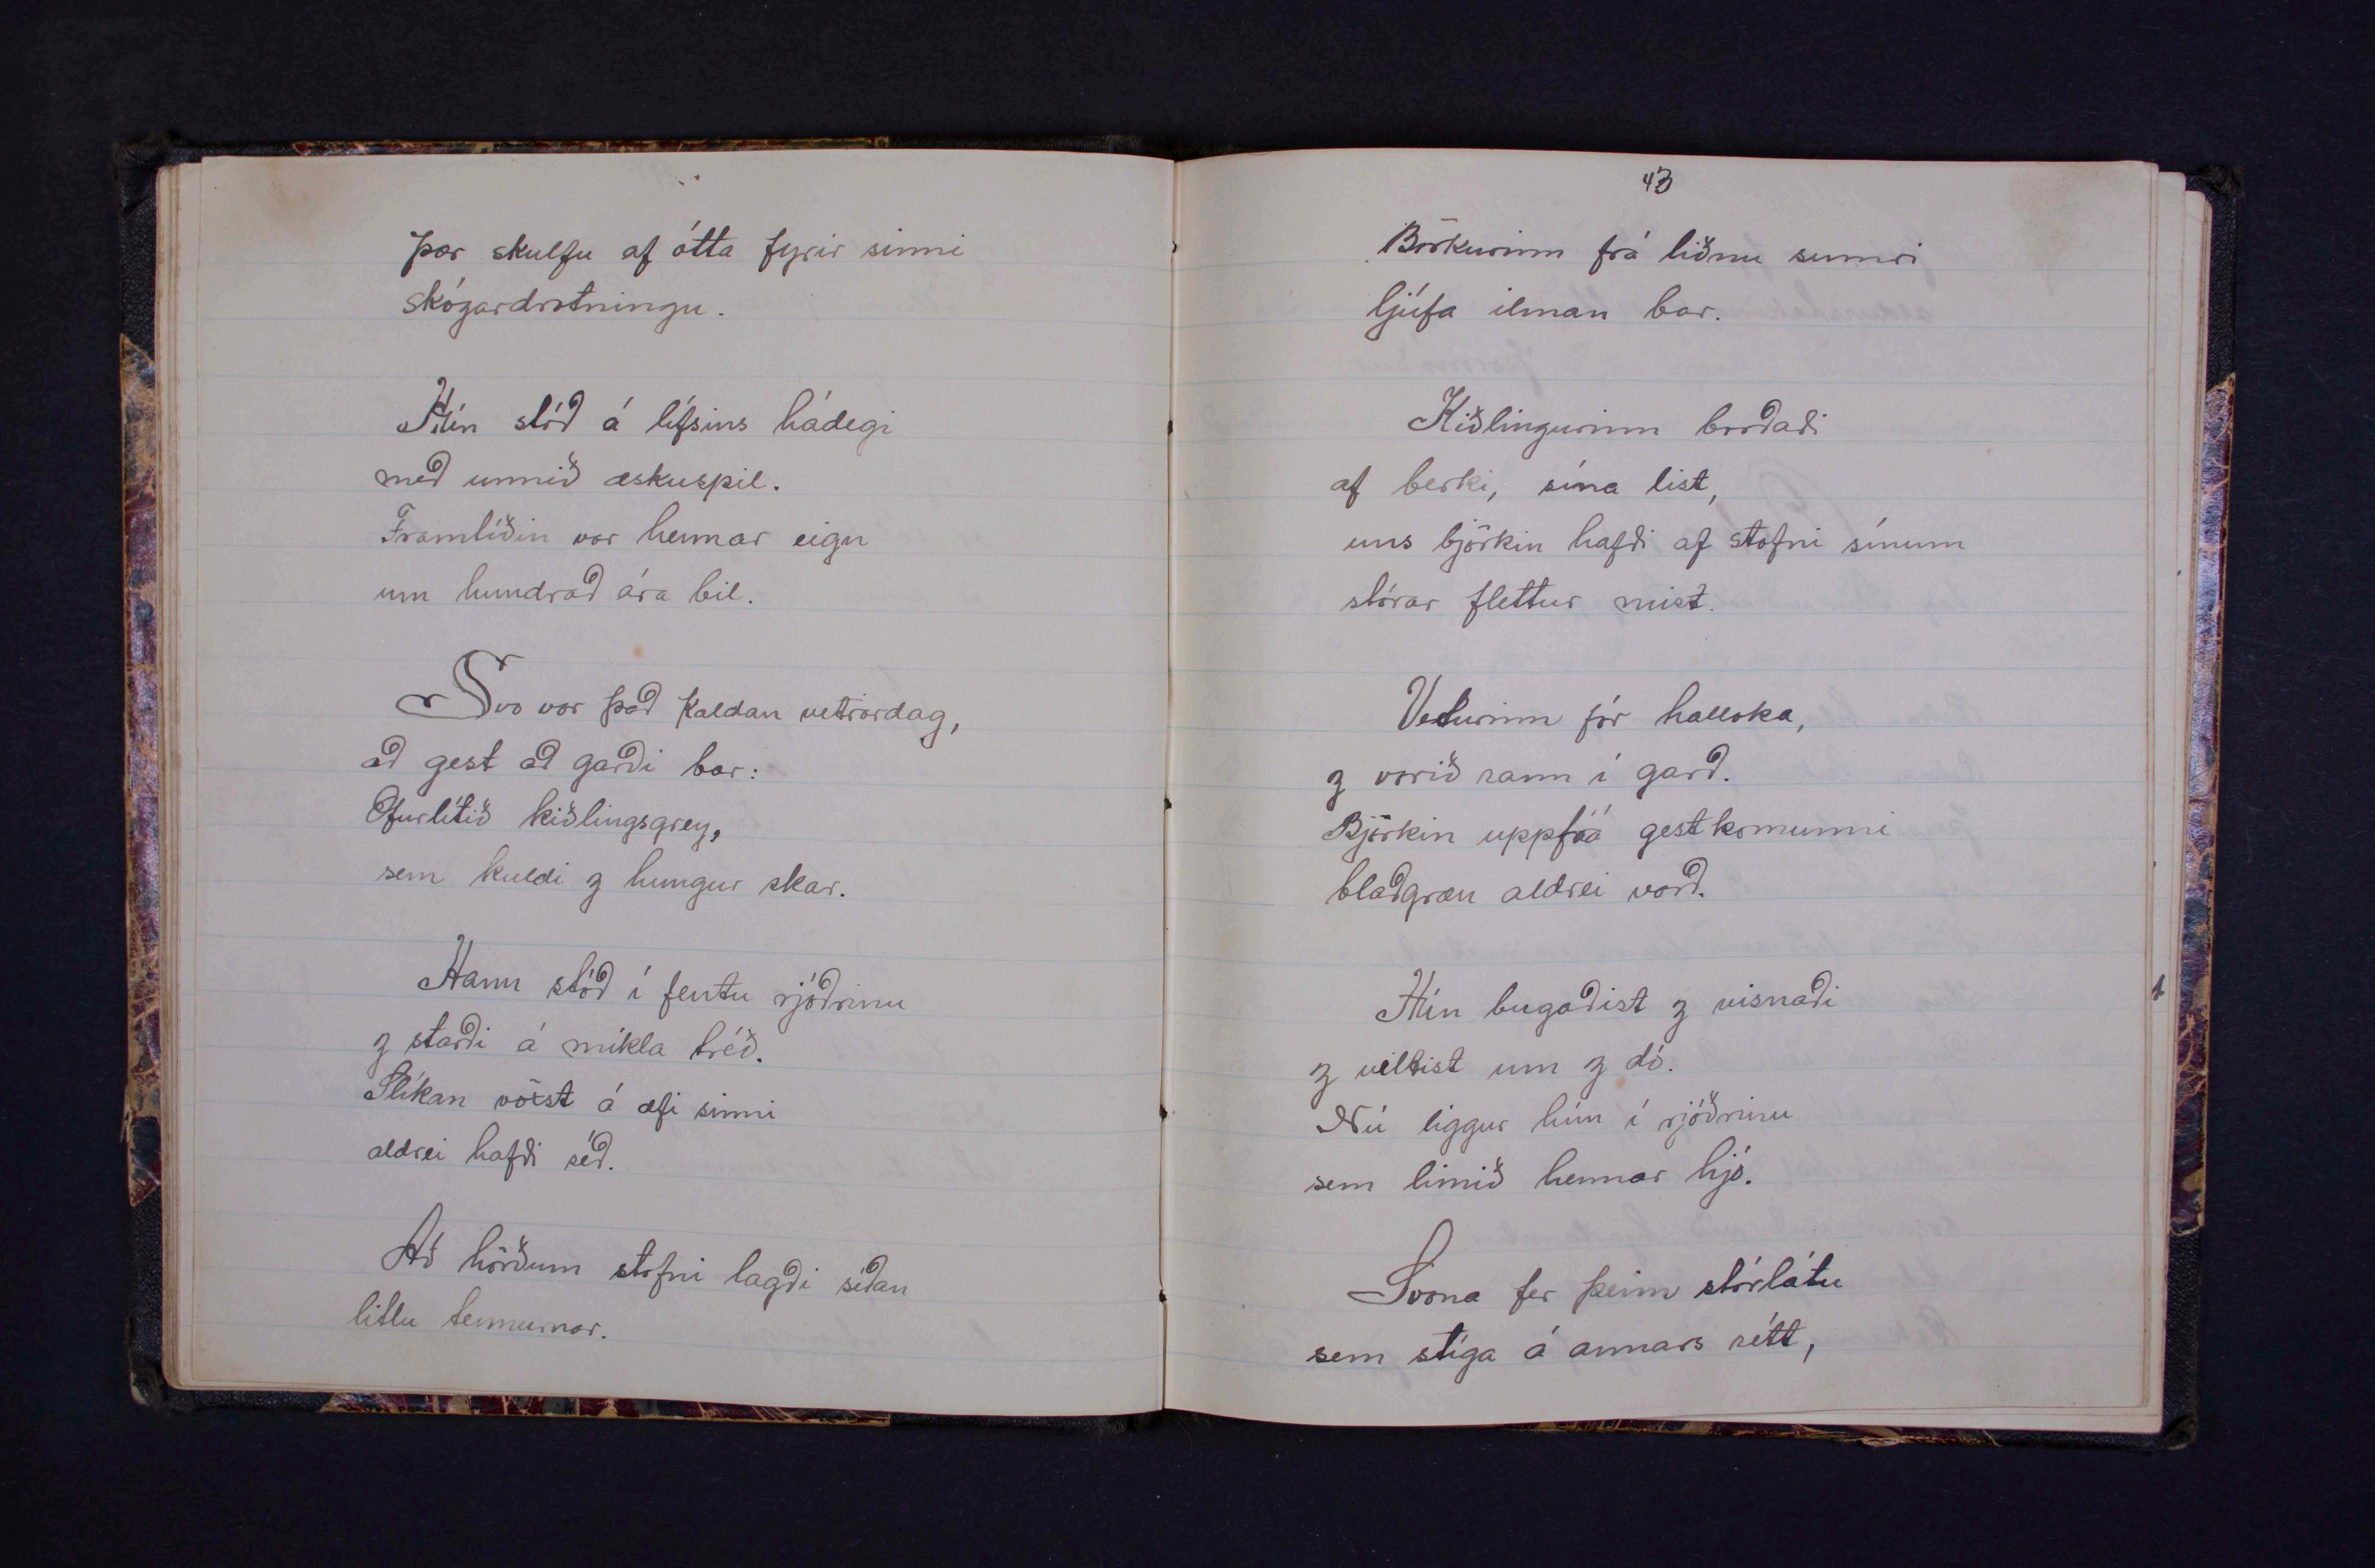 Þær skulfu af ótta fyrir sinni
skógardrotningu.
Hún stóð á lífsins hádegi
með unnið æskuspil.
Framtíðin var hennar eign
um hundrað ára bil.
Svo var það kaldan vetrardag,
að gest að garði bar:
Ofurlítið kiðlingsgrey,
sem kuldi z hungur skar.
Hann stóð í fentu rjóðrinu
z starði á mikla tréð.
Slíkan vöxt á æfi sinni
aldrei hafði séð.
Að hörðum stofni lagði síðan
litlu tennurnar.
43
Börkurinn frá liðnu sumri
ljúfa ilman bar.
Kiðlingurinn borðaði
af berki, sína list,
uns björkin hafði af stofni sínum
stórar flettur mist.
Veturinn fór halloka,
z vorið rann í garð.
Björkin uppfrá gestkomunni
blaðgræn aldrei varð.
Hún bugaðist z visnaði
z veltist um z dó.
Nú liggur hún í rjóðrinu
sem limið hennar hjó.
Svona fer þeim stórlátu
sem stíga á annars rétt,